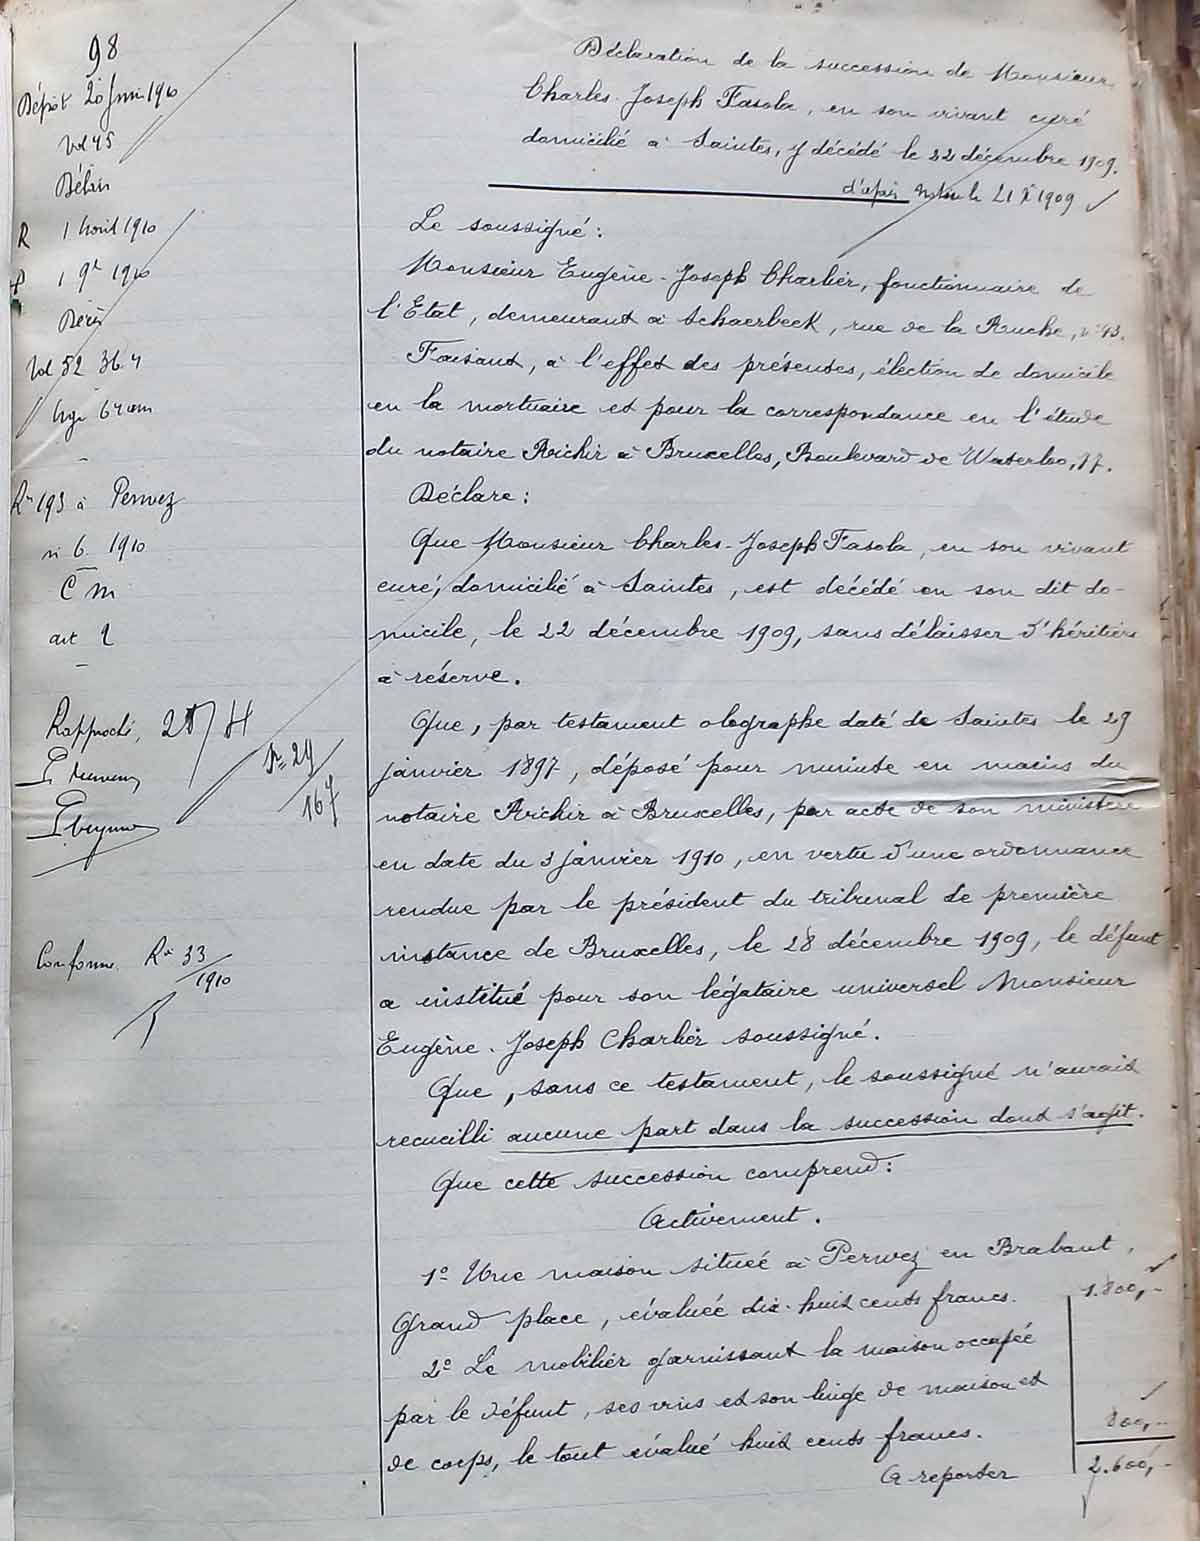 98
Dépôt 20 Juin 1910
Vol 45
R 1 avril 1910
1 9bre 1910
Vol 52
Rn 193 à Perwez
n 6. 1910
C M
art 2
Rapproché,
29
167
Conforme. Rn 33
1910
Déclaration de la succession de Monsieur
Charles-Joseph Fasola, en son vivant curé
domicilié à Saintes, y décédé le 22 décembre 1909.
d'après le 21 Xbre 1909
Le soussigné :
Monsieur Eugène-Joseph Charlier, fonctionnaire de
l'Etat, demeurant à Schaerbeek, rue de la Ruche, n° 43.
Faisant, à l'effet des présentes, élection de domicile
en la mortuaire et pour la correspondance en l'étude
du notaire Richir à Bruxelles, Boulevard de Waterloo, 77.
Déclare :
Que Monsieur Charles-Joseph Fasola, en son vivant
curé, domicilié à Saintes, est décédé en son dit do-
micile, le 22 décembre 1909, sans délaisser d'héritiers
à réserve.
Que, par testament olographe daté de Saintes le 29
janvier 1897, déposé pour minute en mains du
notaire Richir à Bruxelles, par acte de son ministère
en date du 3 janvier 1910, en vertu d'une ordonnance
rendue par le président du tribunal de première
instance de Bruxelles, le 28 décembre 1909, le défunt
a institué pour son légataire universel Monsieur
Eugène-Joseph Charlier soussigné.
Que, sans ce testament, le soussigné n'aurait
recueilli aucune part dans la succession dont s'agit.
Que cette succession comprend :
Activement.
1° Une maison située à Perwez en Brabant,
Grand place, évaluée dix-huit cents francs. 1.800,-
2° Le mobilier garnissant la maison occupée
par le défunt, ses vins et son linge de maison et
de corps, le tout évalué huit cents francs. 800,-
A reporter 2.600,-